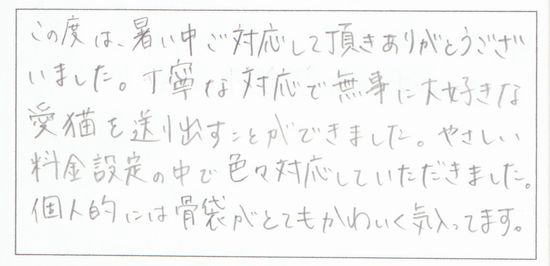 この度は、暑い中ご対応して頂きありがとうござ
いました。丁寧な対応で無事に大好きな
愛猫を送り出すことができました。やさしい
料金設定の中で色々対応していただきました。
個人的には骨袋がとてもかわいく気入ってます。